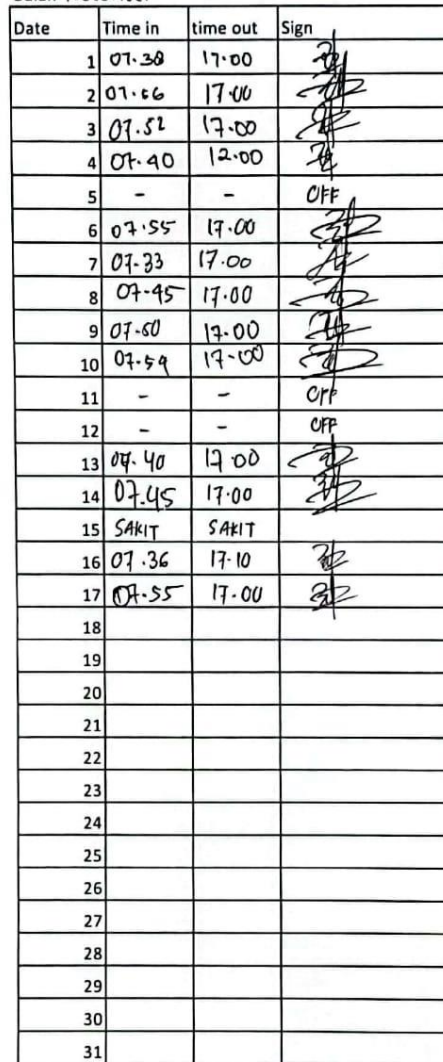 Date Time in time out Sign
1 07.38 17.00
2 07.56 17.00
3 07.52 17.00
4 07.40 12.00
5 - - OFF
6 07.55 17.00
7 07.33 17.00
8 07.45 17.00
9 07.50 17.00
10 07.59 17.00
11 - - OFF
12 - - OFF
13 07.40 17.00
14 07.45 17.00
15 SAKIT SAKIT
16 07.36 17.10
17 07.55 17.00
18
19
20
21
22
23
24
25
26
27
28
29
30
31